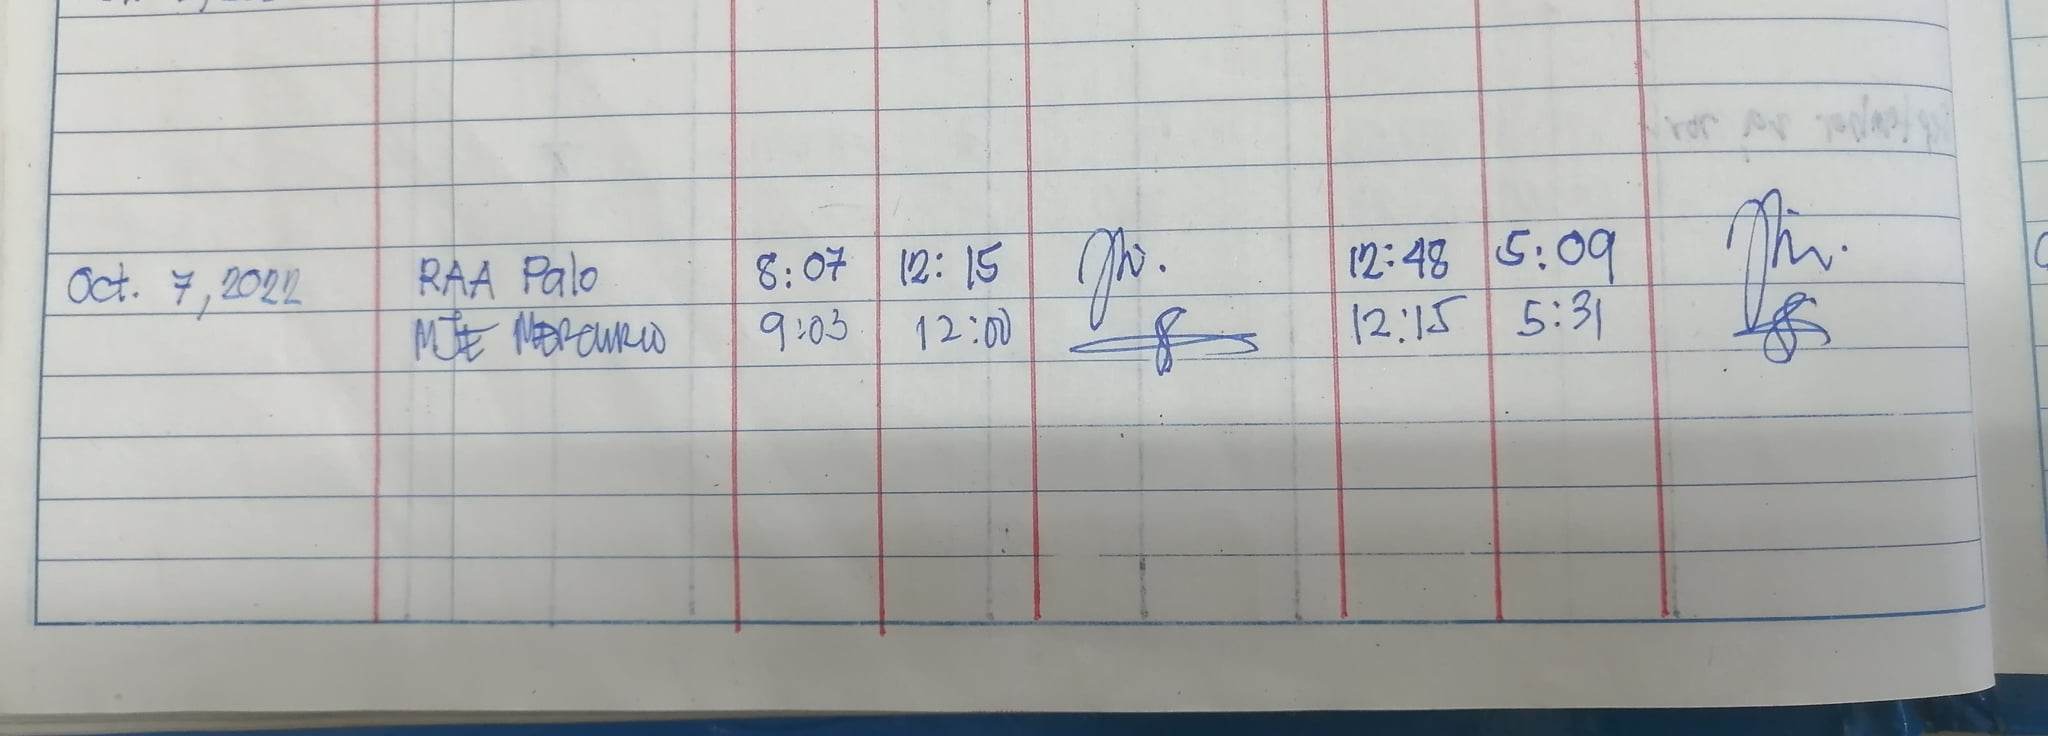 Oct. 7, 2022 RAA Palo 8:07 12:15 12:48 5:09
MJE Mercurio 9:03 12:00 12:15 5:31